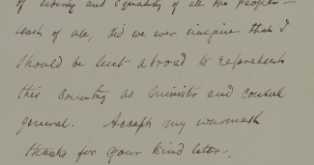 of liberty and equality of all the people—
least of all, did we ever imagine that I
should be sent abroad to represent
this country as minister and consul
general. Accept my warmest
thanks for your kind letter.